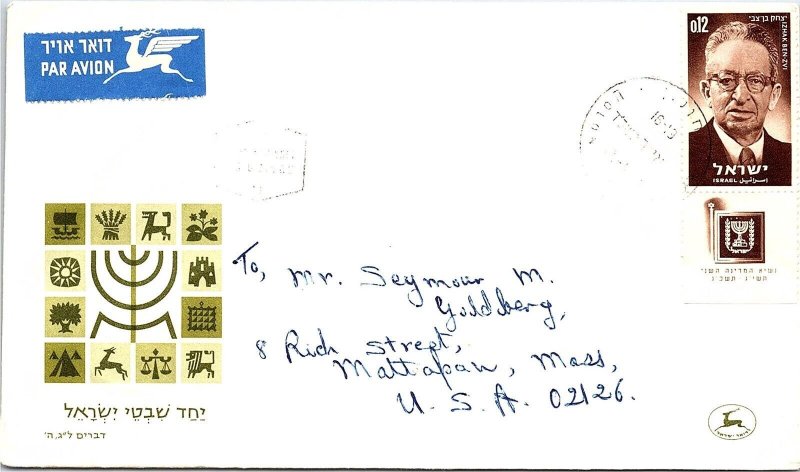 דואר אויר
PAR AVION
יצחק בן-צבי
IZHAK BEN-ZVI
0.12
ישראל
ISRAEL اسرائيل
נשיא המדינה השני
תשי"ג - תשכ"ג
16-13
To, Mr. Seymour M.
Goldberg,
8 Rich Street,
Mattapan, Mass,
U. S. A. 02126.
יַחַד שִׁבְטֵי יִשְׂרָאֵל
דברים ל"ג, ה'